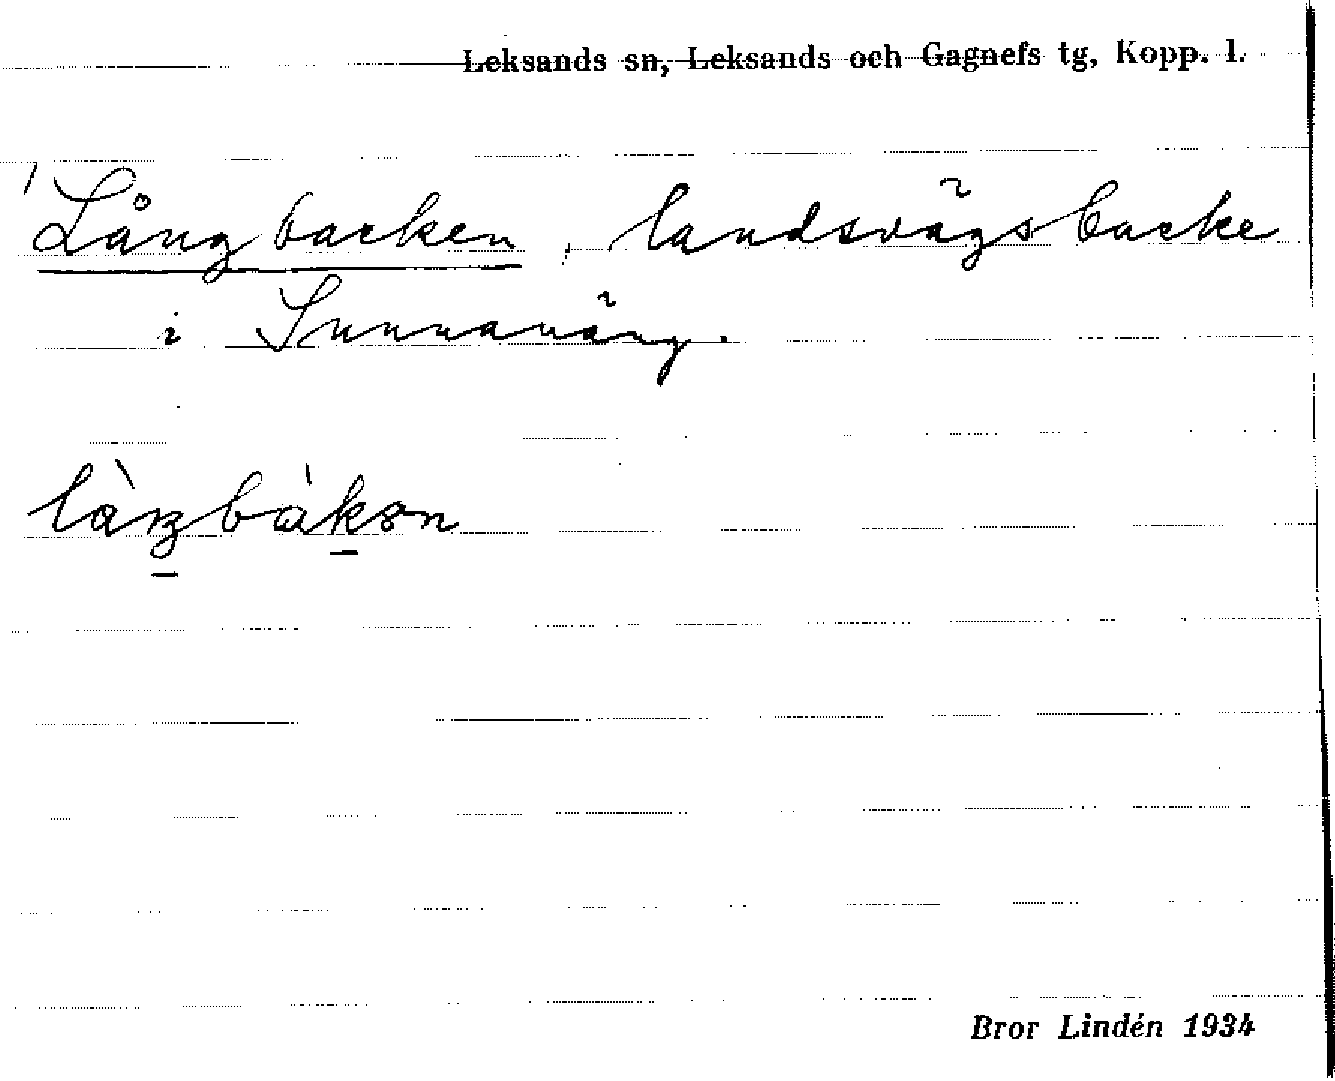 Leksands sn, Leksands och Gagnefs tg, Kopp. l.
Långbacken, landsvägsbacke
i Sunnanäng.
Bror Lindén 1934